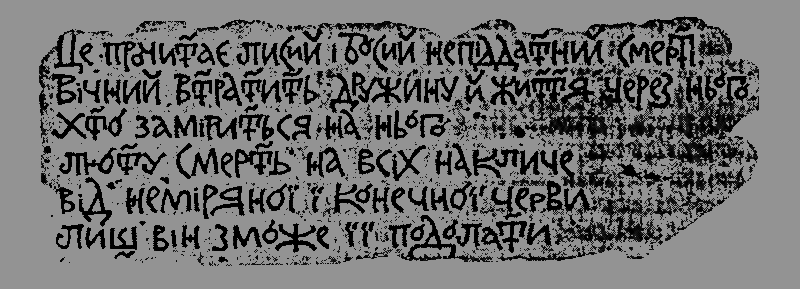 Це прочитає лисий і босий непіддатний смерті
Вічний втратить дружину й життя через нього
хто заміриться на нього
люту смерть на всіх накличе
від неміряної її конечної черви
лиш він зможе її подолати